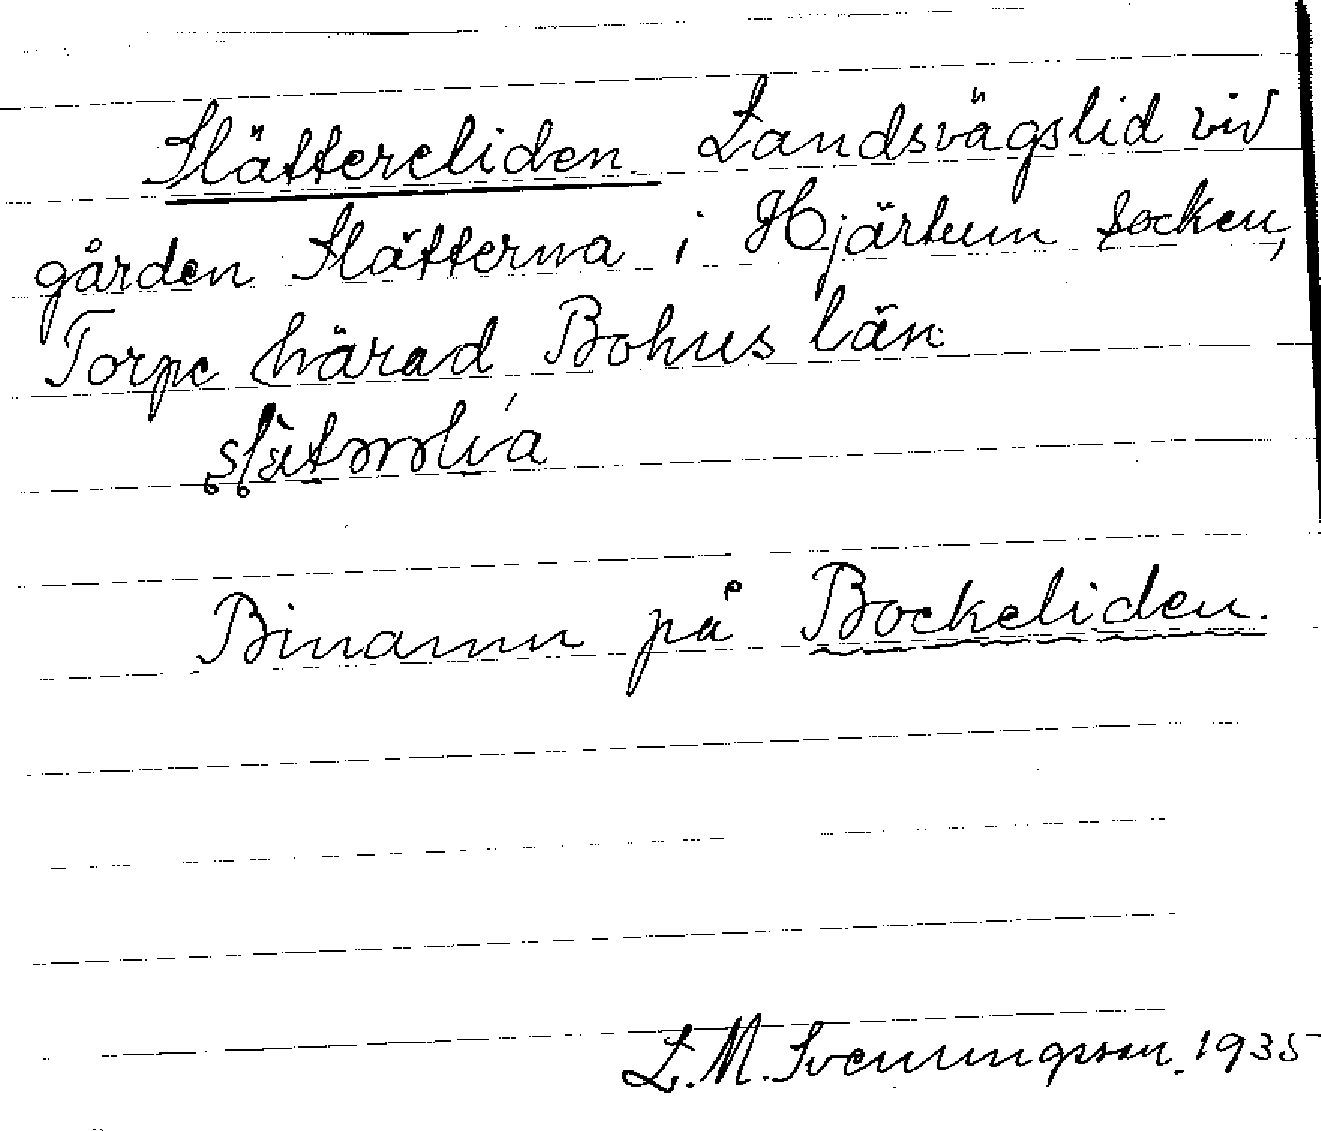 Slättereliden Landsvägslid vid
gården Slätterna i Hjärtum socken,
Torpe härad Bohus län
Binamn på Bockeliden.
L. M. Svenningsson. 1935